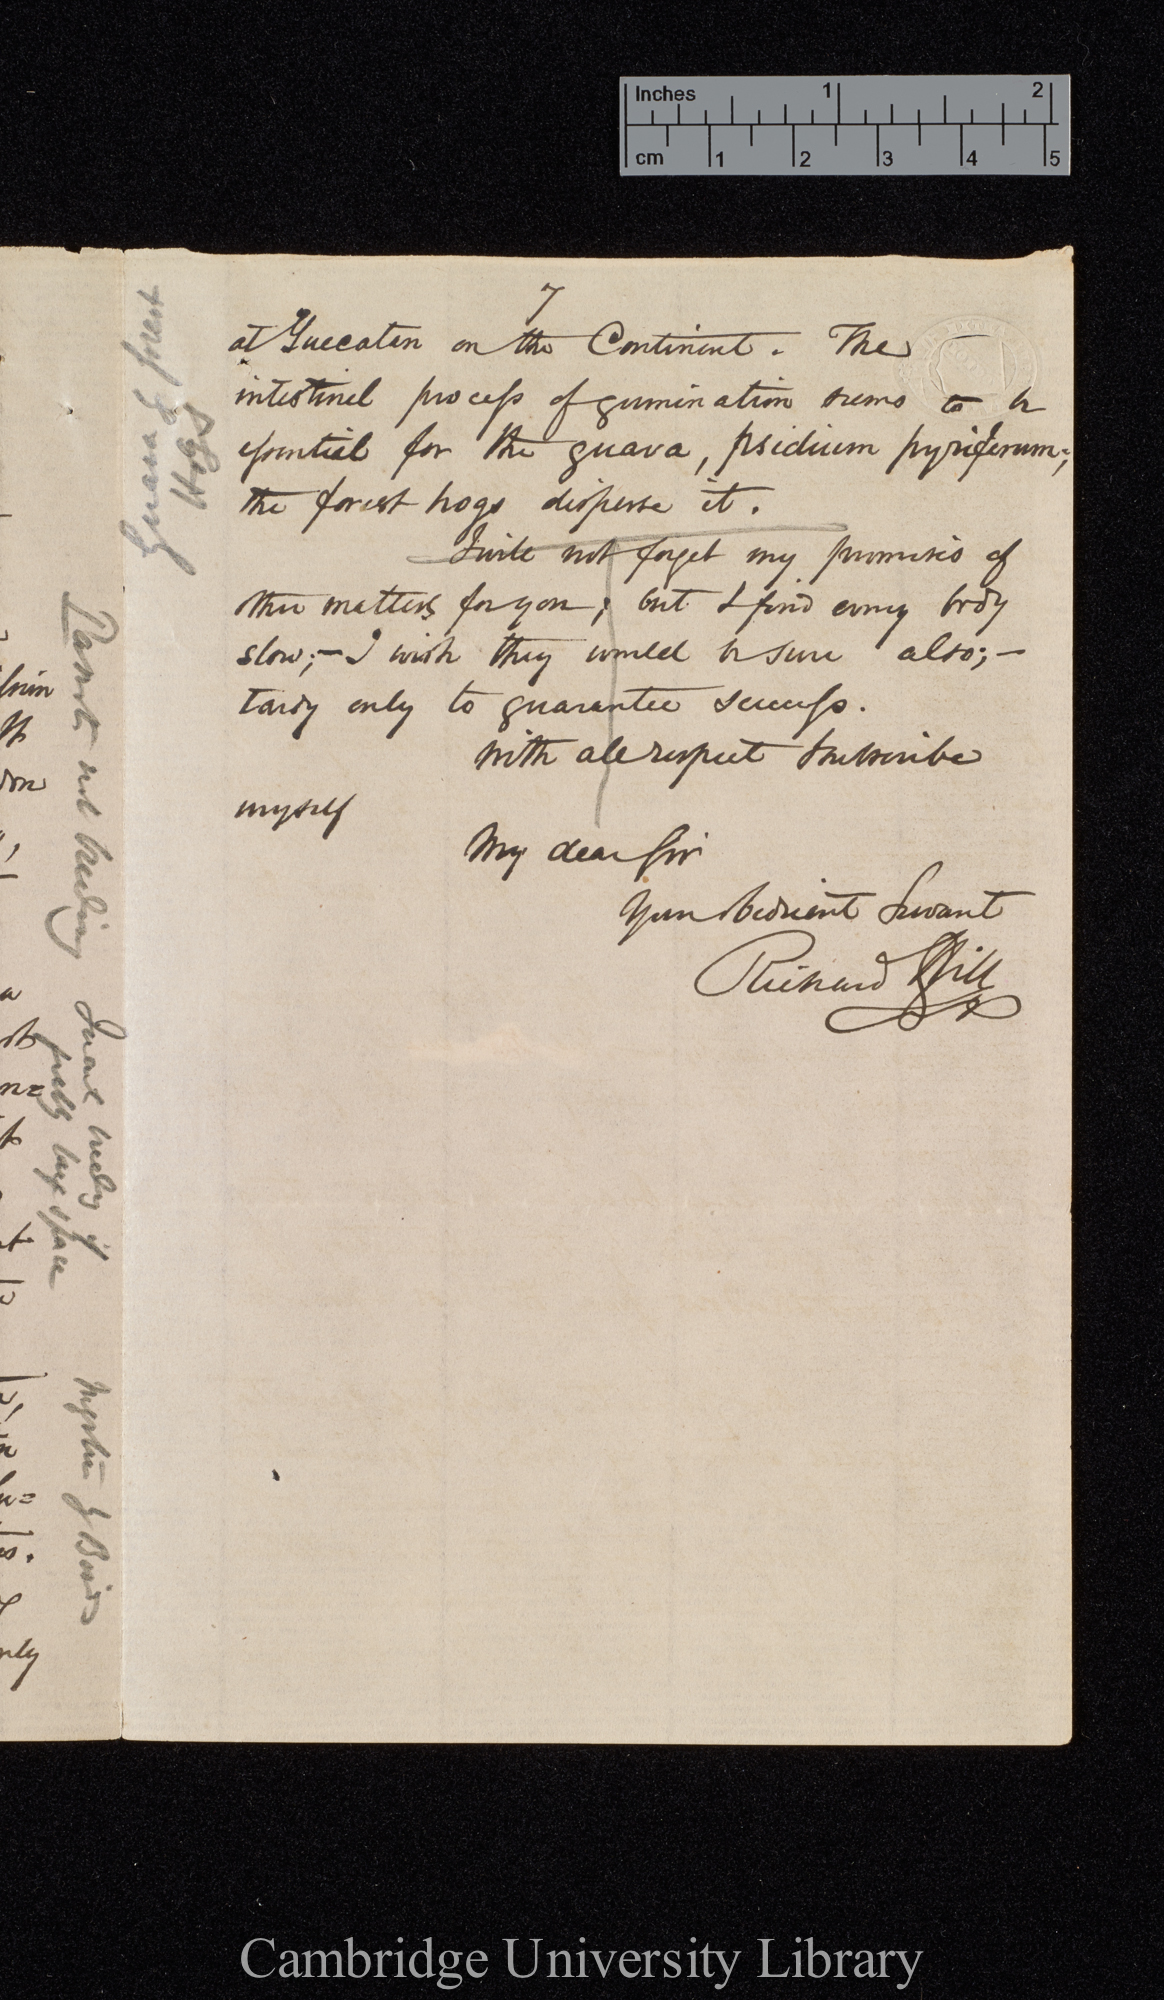 Inches 1 2
cm 1 2 3 4 5
7
at Yuccatan on the Continent. The
intestinal process of germination seems to be
essential for the guava, psidium pyriferum;
the forest hogs disperse it.
I will not forget my promises of
other matters for you; but I find every body
slow;— I wish they would be sure also;—
tardy only to guarantee success.
With all respect I subscribe
myself
My dear Sir
Your obedient Servant
Richard Hill
Guava & forest
Hogs
Parrots not breeding
breeding if
large space
Migration of Birds
only
Cambridge University Library